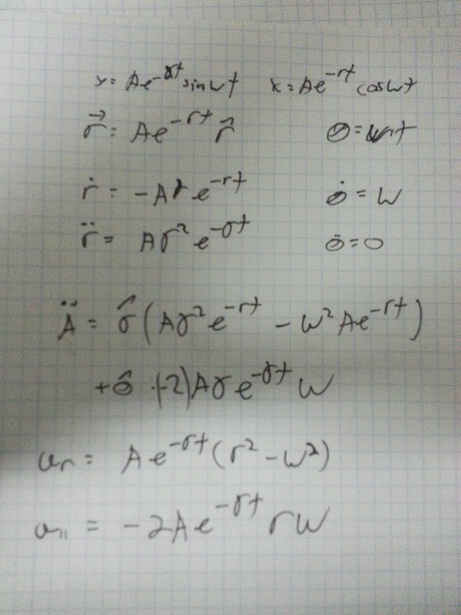 y = Ae^{-γt} sin ωt   x = Ae^{-γt} cos ωt
\vec{r} = Ae^{-γt} \hat{r}   θ = ωt
\dot{r} = -Aγe^{-γt}   \dot{θ} = ω
\ddot{r} = Aγ²e^{-γt}   \ddot{θ} = 0
\ddot{A} = \hat{r}(Aγ²e^{-γt} - ω²Ae^{-γt})
+ \hat{θ} · (-2)Aγe^{-γt} ω
a_r = Ae^{-γt}(γ² - ω²)
a_{11} = -2Ae^{-γt} γω